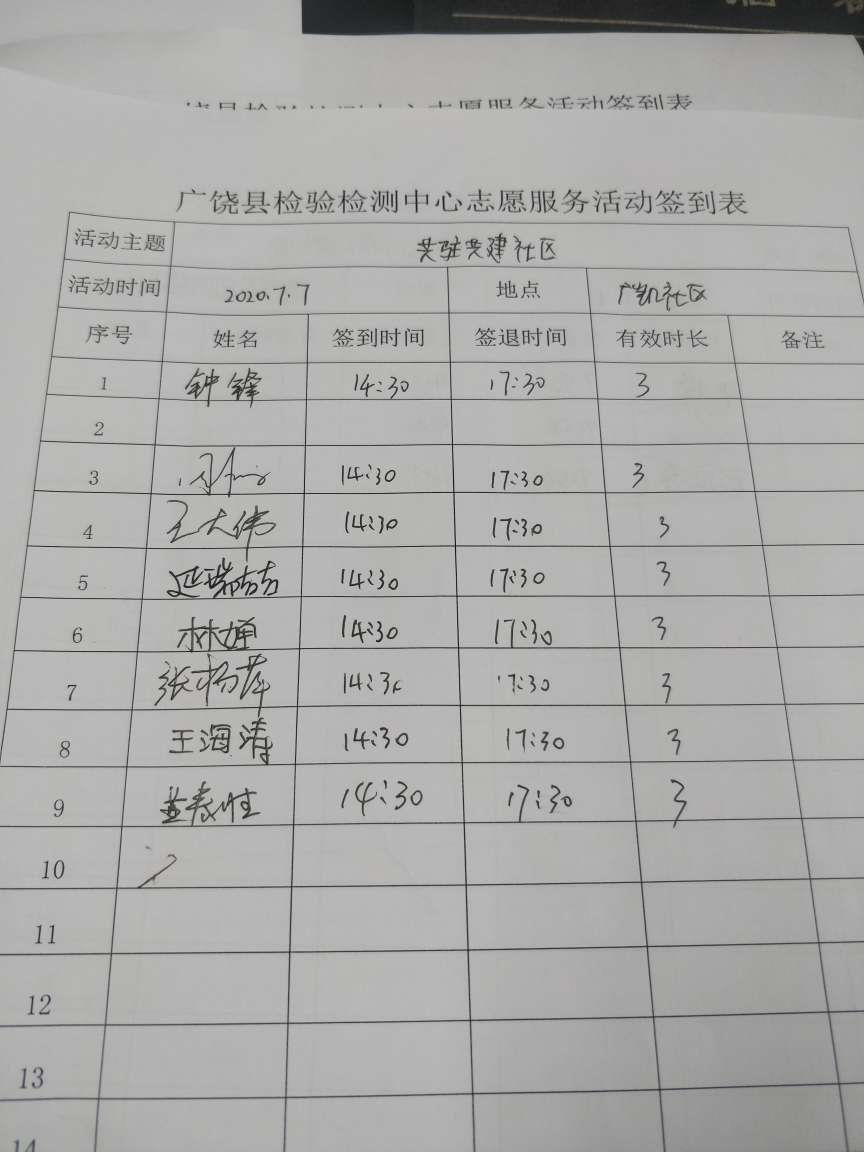 广饶县检验检测中心志愿服务活动签到表
广饶县检验检测中心志愿服务活动签到表
活动主题 共驻共建社区
活动时间 2020.7.7 地点 广凯社区
序号 姓名 签到时间 签退时间 有效时长 备注
1 钟锋 14:30 17:30 3
2
3 14:30 17:30 3
4 王大伟 14:30 17:30 3
5 14:30 17:30 3
6 14:30 17:30 3
7 张杨萍 14:30 17:30 3
8 王海涛 14:30 17:30 3
9 14:30 17:30 3
10
11
12
13
14